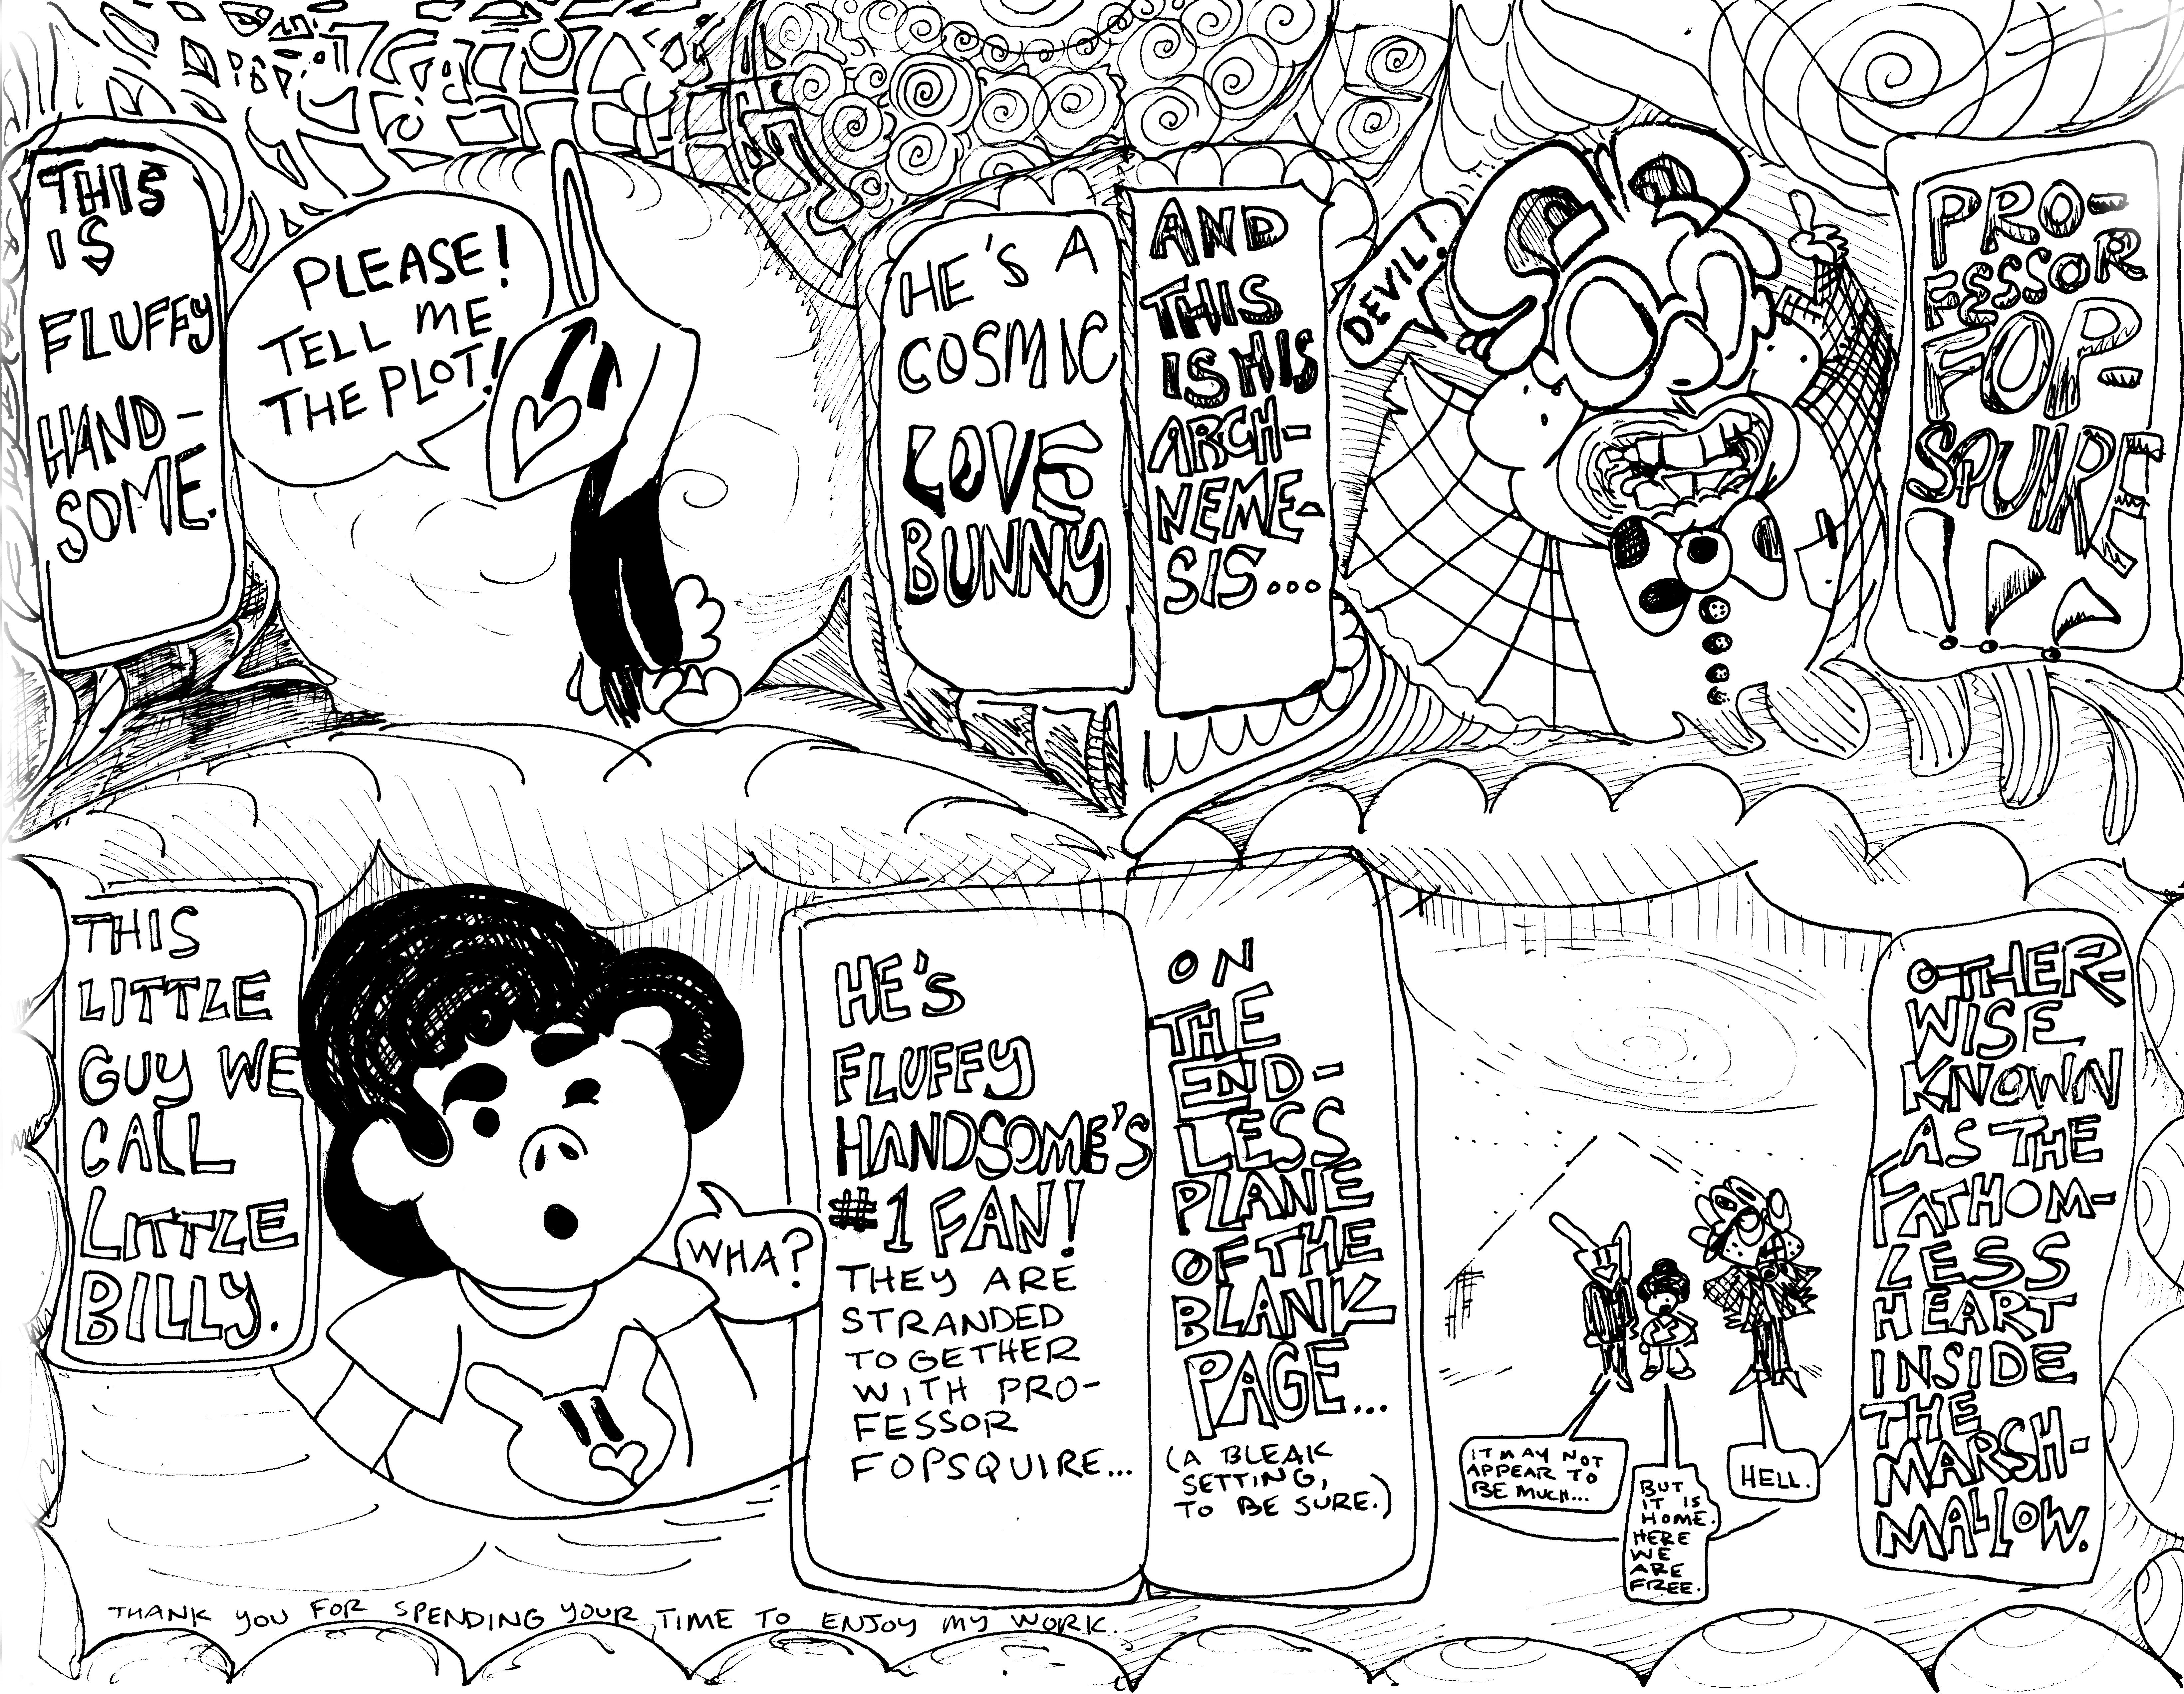 THIS
IS
FLUFFY
HAND-
SOME.
PLEASE!
TELL ME
THE PLOT!
HE'S A
COSMIC
LOVE
BUNNY
AND
THIS
IS HIS
ARCH-
NEME-
SIS...
DEVIL!
PRO-
FESSSOR
FOP-
SQUIRE
!
THIS
LITTLE
GUY WE
CALL
LITTLE
BILLY.
WHA?
HE'S
FLUFFY
HANDSOME'S
#1 FAN!
THEY ARE
STRANDED
TOGETHER
WITH PRO-
FESSOR
FOPSQUIRE...
ON
THE
END-
LESS
PLANE
OF THE
BLANK
PAGE...
(A BLEAK
SETTING,
TO BE SURE.)
IT MAY NOT
APPEAR TO
BE MUCH...
BUT
IT IS
HOME.
HERE
WE
ARE
FREE.
HELL.
OTHER-
WISE
KNOWN
AS THE
FATHOM-
LESS
HEART
INSIDE
THE
MARSH-
MALLOW.
THANK YOU FOR SPENDING YOUR TIME TO ENJOY MY WORK.